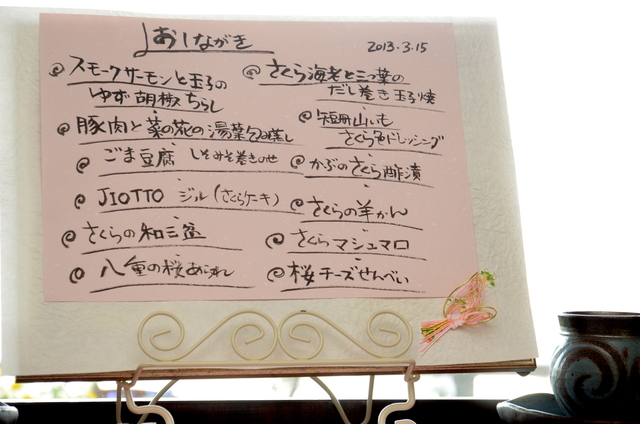 おしながき
2013.3.15
スモークサーモンと玉子の
ゆず胡椒ちらし
豚肉と菜の花の湯葉包蒸し
ごま豆腐 しそみそ巻きのせ
JIOTTO ジル(さくらケーキ)
さくらの和三盆
八重の桜あられ
さくら海老と三つ葉の
だし巻き玉子焼
短冊山いも
さくら色ドレッシング
かぶのさくら酢漬
さくらの羊かん
さくらマシュマロ
桜チーズせんべい